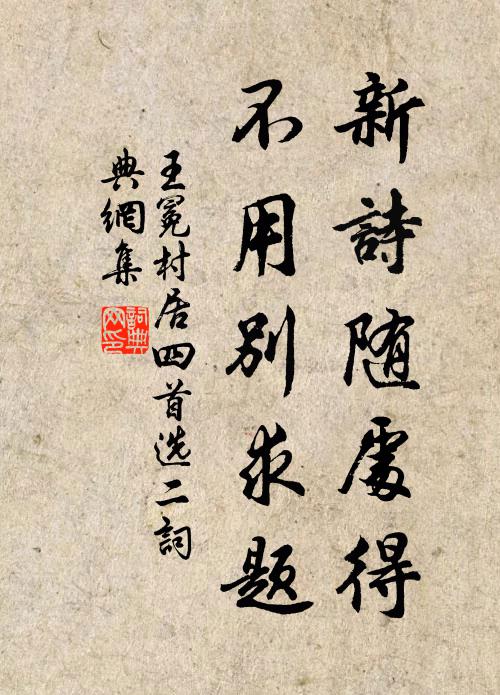 新詩随處得
不用別求题
王冕村居四首选二詞
典網集
詞典网印